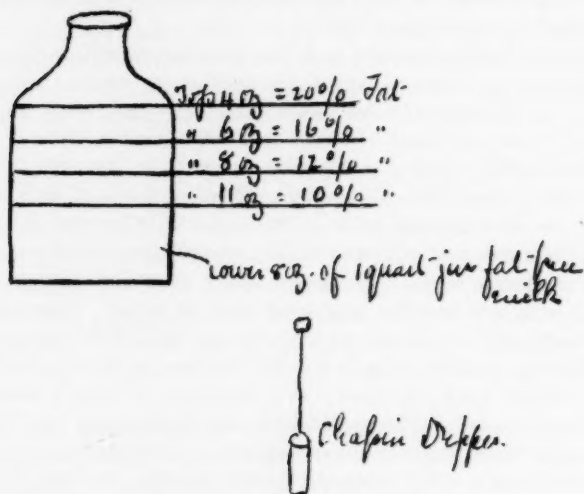 Top 4 oz = 20% Fat
" 6 oz = 16% "
" 8 oz = 12% "
" 11 oz = 10% "
Lower 8 oz. of 1 quart jar fat-free
milk
Chapin Dipper.